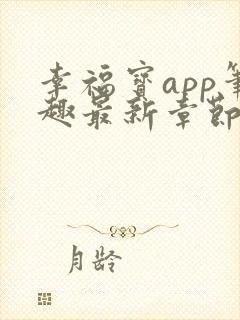 幸福宝app笔
趣最新章节
月龄